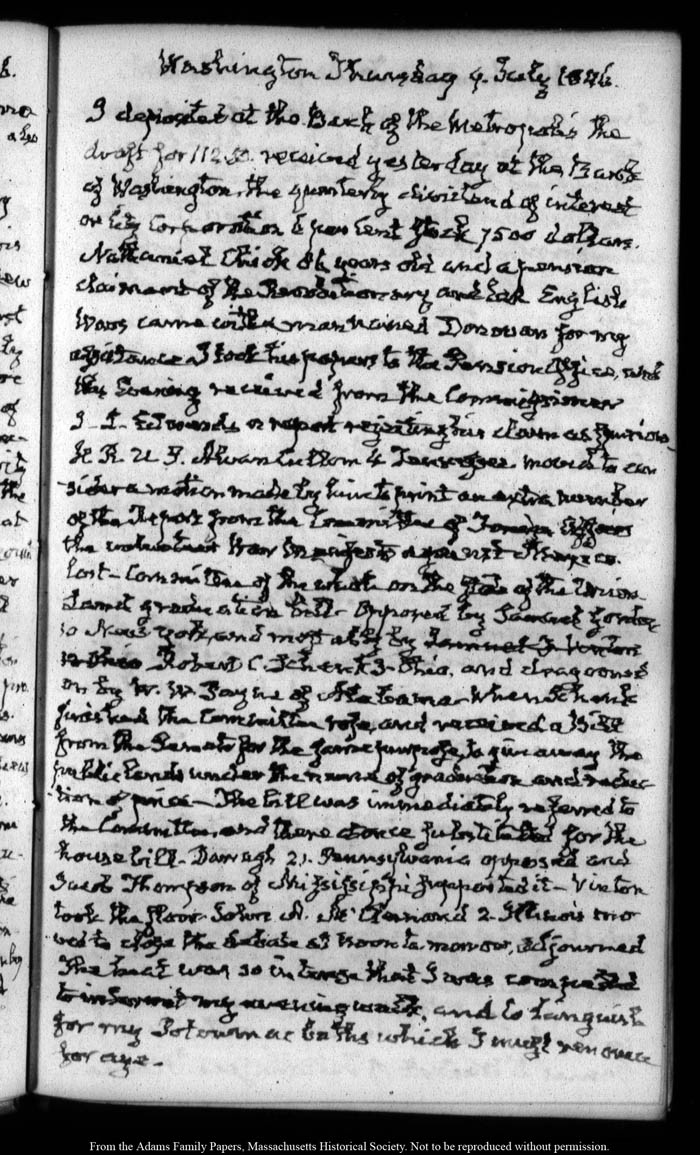 Washington Thursday 9. July 1846.
I deposited at the Bank of the Metropolis the
draft for 112.50. received yesterday at the Bank
of Washington, the quarterly dividend of interest
on City Corporation 6 per Cent Stock 7500 dollars.
Nathaniel Chick 86 years old and a pension
claimant of the Revolutionary and last English
Wars came with a man named Donovan for my
assistance I took his papers to the Pension Office, and
this Evening received from the Commissioner
J. L. Edwards a report rejecting his claim as spurious
H. R. U. S. Alvan Cullom 4 Tennessee moved to con
sider a motion made by him to print an extra number
of the Report from the Committee of Foreign Affairs
the against Mexico.
lost— Committee of the whole on the State of the Union
Land graduation bill— Opposed by Samuel Gordon
10 New York and most ably by Samuel F. Vinton
Robert C. Schenck 3. Ohio, and dragooned
on by W. W. Payne of Alabama— When Schenck
finished the Committee rose, and received a Bill
from the Senate for the same purpose, to give away the
public lands under the name of graduation and reduc
tion of price— The bill was immediately referred to
the Committee, and there at once substituted for the
house bill— Darragh 21. Pennsylvania opposed and
Jacob Thompson of Mississippi supported it— Vinton
took the floor. John A. McClernand 2. Illinois mo
ved to close the debate at Noon to morrow, adjourned
The heat was so intense that I was compelled
to intermit my evening walk, and to languish
for my Potowmac baths which I must renounce
for aye—
a les
new
of
the
at
From the Adams Family Papers, Massachusetts Historical Society. Not to be reproduced without permission.